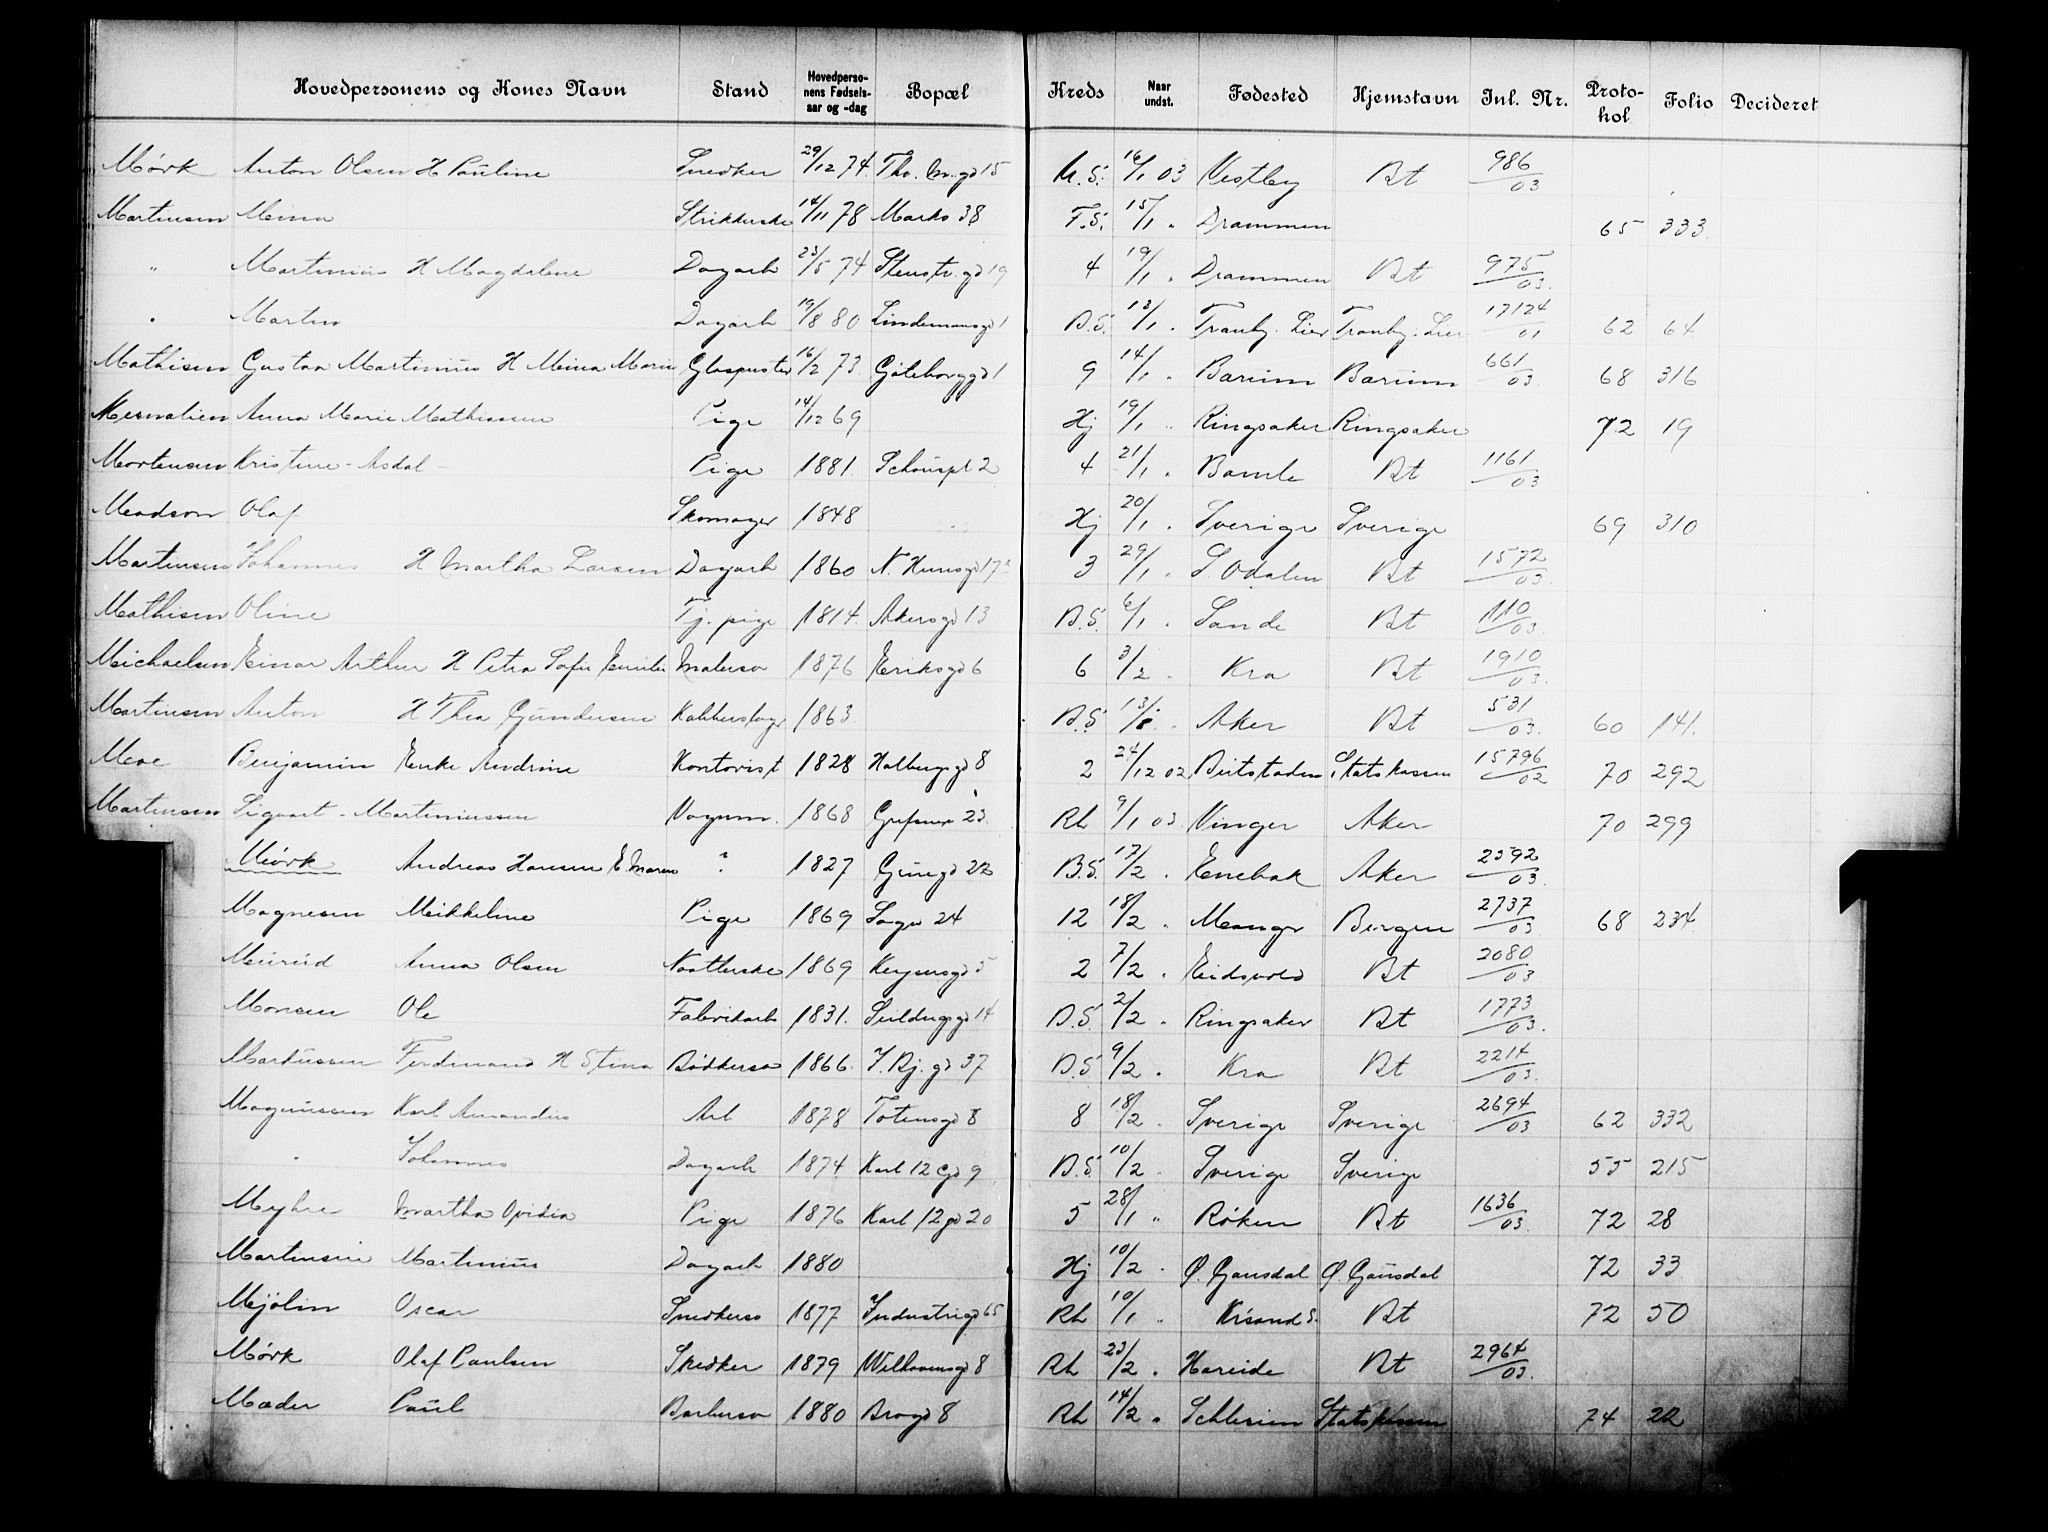 Hovedpersonens og Kones Navn Stand Hovedperso-nens Fødsels-aar og -dag Bopæl Kreds Naar undst. Fødested Hjemstavn Inl. Nr. Proto-kol Folio Decideret
Mørk Anton Olsen H Pauline Snedker 29/12 74 Tho. M. gd 15 U.S. 16/1 03 Vestby Bt 986/03
Martinsen Mina Strikkerske 14/11 78 Markv 38 F.S. 15/1 " Drammen 65 333
" Martinius H Magdalene Dagarb 23/5 74 Stenstr. gd 19 4 19/1 " Drammen Bt 975/03
" Martin Dagarb 19/8 80 Lindemansgd 1 B.S. 13/1 " Tranby. Lier Tranby. Lier 17124/01 62 64
Mathisen Gustav Martinius H Mina Marie Glaspuster 16/2 73 Göteborggd 1 9 14/1 " Bærum Bærum 661/03 68 316
Mesnalien Anna Marie Mathiassen Pige 14/12 69 Hj 19/1 " Ringsaker Ringsaker 72 19
Mortensen Kristine - Asdal - Pige 1881 Schouspl 2 4 21/1 " Bamle Bt 1161/03
Madson Olaf Skomager 1848 Hj 20/1 " Sverige Sverige 69 310
Martinsen Johannes H Martha Larsen Dagarb 1860 N. Hunsgd 17 3 29/1 " S. Odalen Bt 1572/03
Mathisen Oline Tj. pige 1814 Akersgd 13 B.S. 6/1 " Sande Bt 110/03
Michaelsen Einar Arthur H Petra Sofie Emilie Malersv 1876 Eriksgd 6 6 3/2 " Kra Bt 1910/03
Martinsen Anton H Thea Gundersen 1863 B.S. 13/1 " Aker Bt 531/03 60 141
Moe Benjamin Enke Andrine Kontorist 1828 Holbergsgd 8 2 24/12 02 Beitstaden Statskassen 15796/02 70 292
Martinsen Sigvart - Martiniussen Vognm. 1868 Grefsenv 23 Rh 9/1 03 Vinger Aker 70 299
Mørk Andreas Hansen E. Maren " 1827 Grungd 22 B.S. 17/2 " Enebak Aker 2592/03
Magnesen Mikkeline Pige 1869 Sagv 24 12 18/2 " Manger Bergen 2737/03 68 234
Murud Anna Olsen Naatlerske 1869 Keysersgd 5 2 7/2 " Eidsvold Bt 2080/03
Monsen Ole Fabrikarb 1831 Seildugsgd 14 B.S. 2/2 " Ringsaker Bt 1773/03
Markussen Ferdinand H Stina Bödkersv 1866 T. Bj. gd 37 B.S 9/2 " Kra Bt 2214/03
Magnussen Karl Amandus Arb 1878 Totensgd 8 8 18/2 " Sverige Sverige 2694/03 62 332
" Johannes Dagarb 1874 Karl 12 gd 9 B.S. 10/2 " Sverige Sverige 55 215
Myhre Martha Ovidia Pige 1876 Karl 12 gd 20 5 28/1 " Røken Bt 1636/03 72 28
Martinsen Martinius Dagarb 1880 Hj 10/2 " Ø. Gausdal Ø. Gausdal 72 33
Mjölin Oscar Snedkersv 1877 Industrigd 65 Rh 10/1 " Krsand S. Bt 72 50
Mørk Olaf Paulsen Snedker 1879 Welhavensgd 8 Rh 23/2 " Hareide Bt 2964/03
Mæder Paul Barbersv 1880 Brogd 8 Rh 14/2 " Schlesien Statskassen 74 22